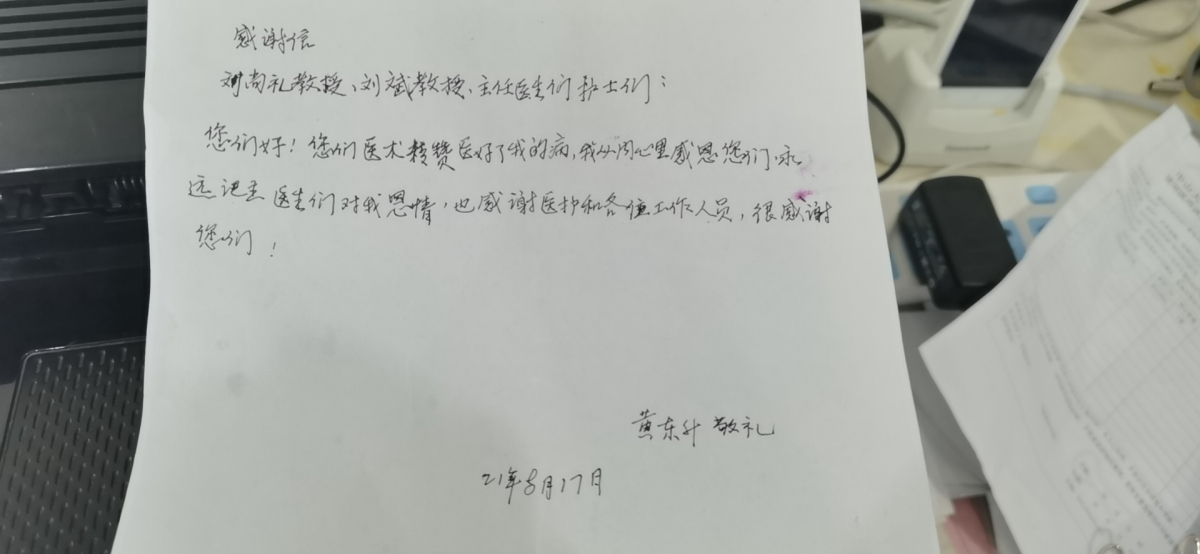 感谢信
刘尚礼教授、刘斌教授、主任医生们护士们：
您们好！您们医术精赞医好了我的病，我从内心里感恩您们永
远记主医生们对我恩情，也感谢医护和各位工作人员，很感谢
您们！
黄东升 敬礼
21年8月17月